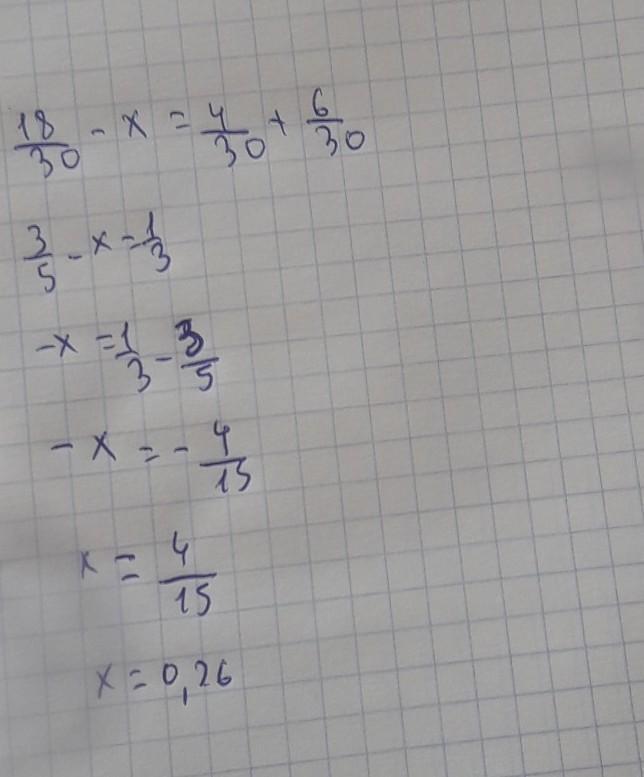 18/30 - x = 4/30 + 6/30
3/5 - x = 1/3
-x = 1/3 - 3/5
- x = - 4/15
x = 4/15
x = 0,26